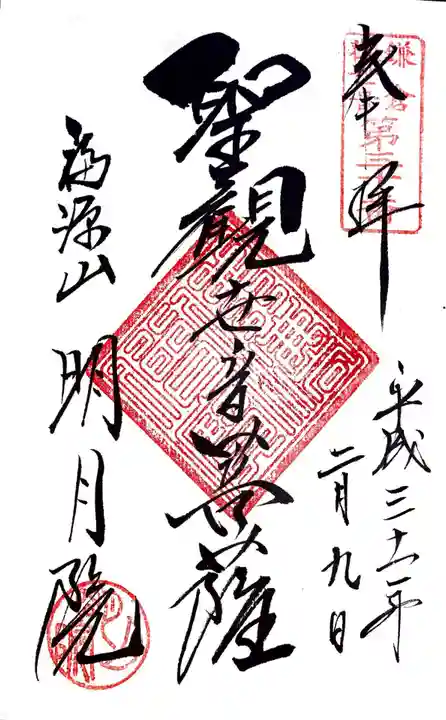 鎌倉
第三
奉拝
平成三十一年
二月九日
聖観世音菩薩
福源山
明月院